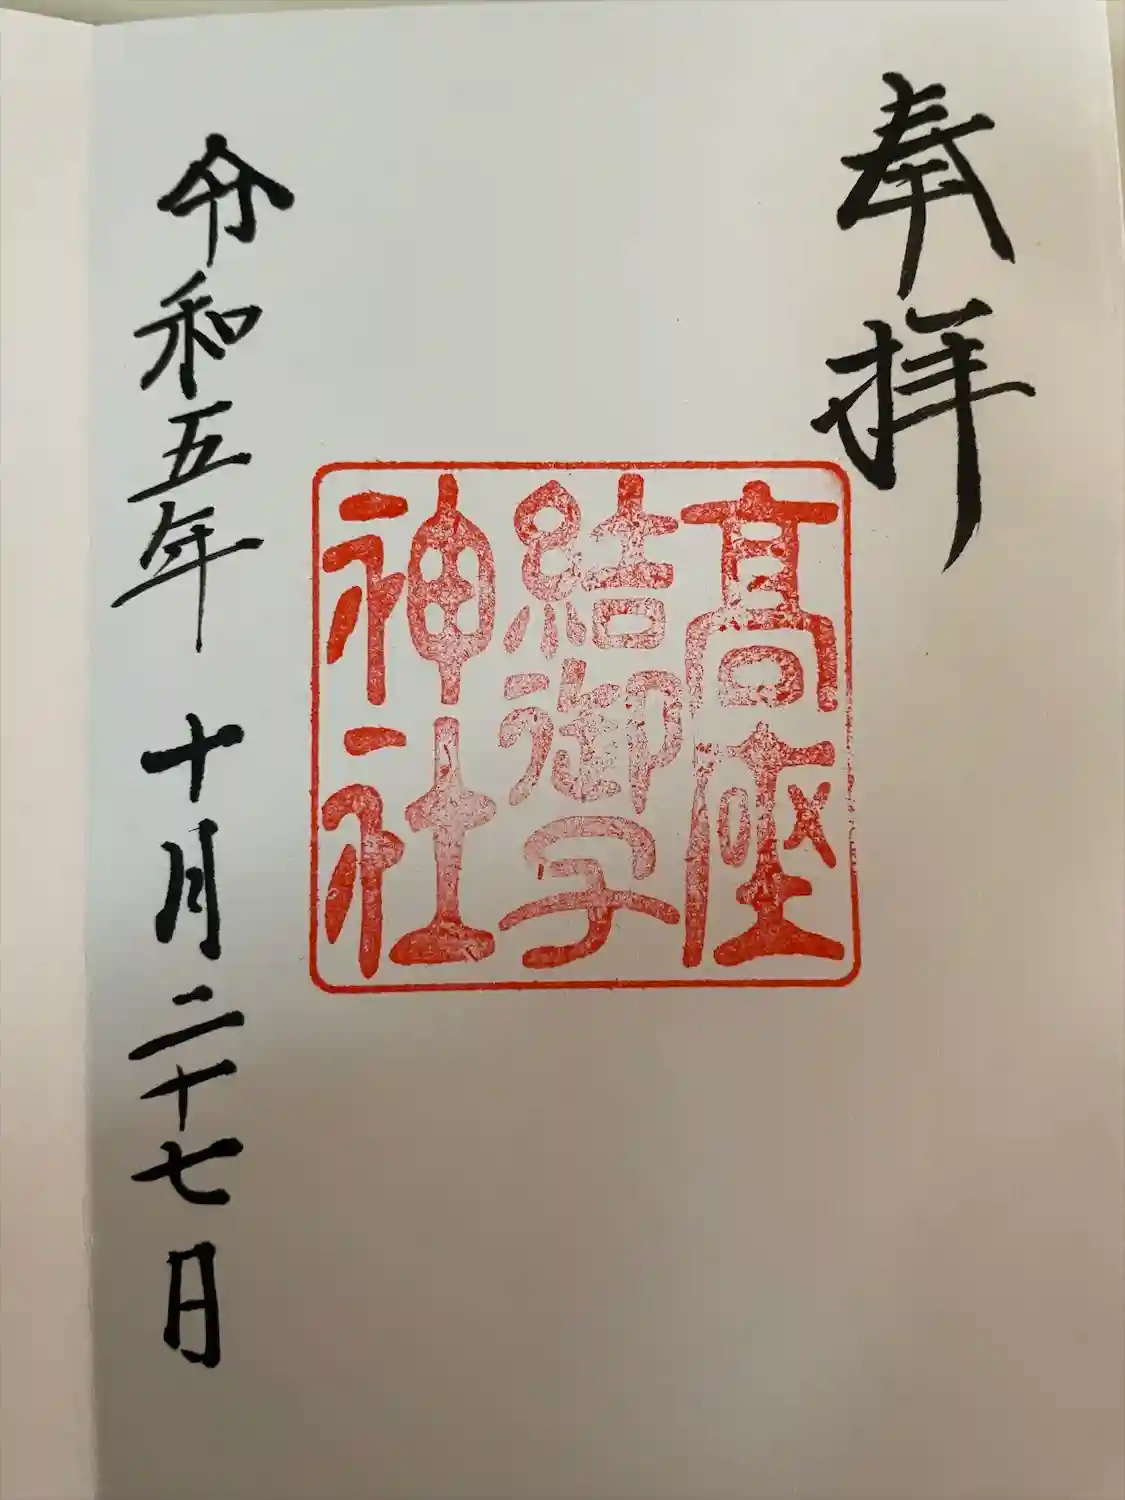 奉拝
髙座
結御子
神社
令和五年 十月二十七日